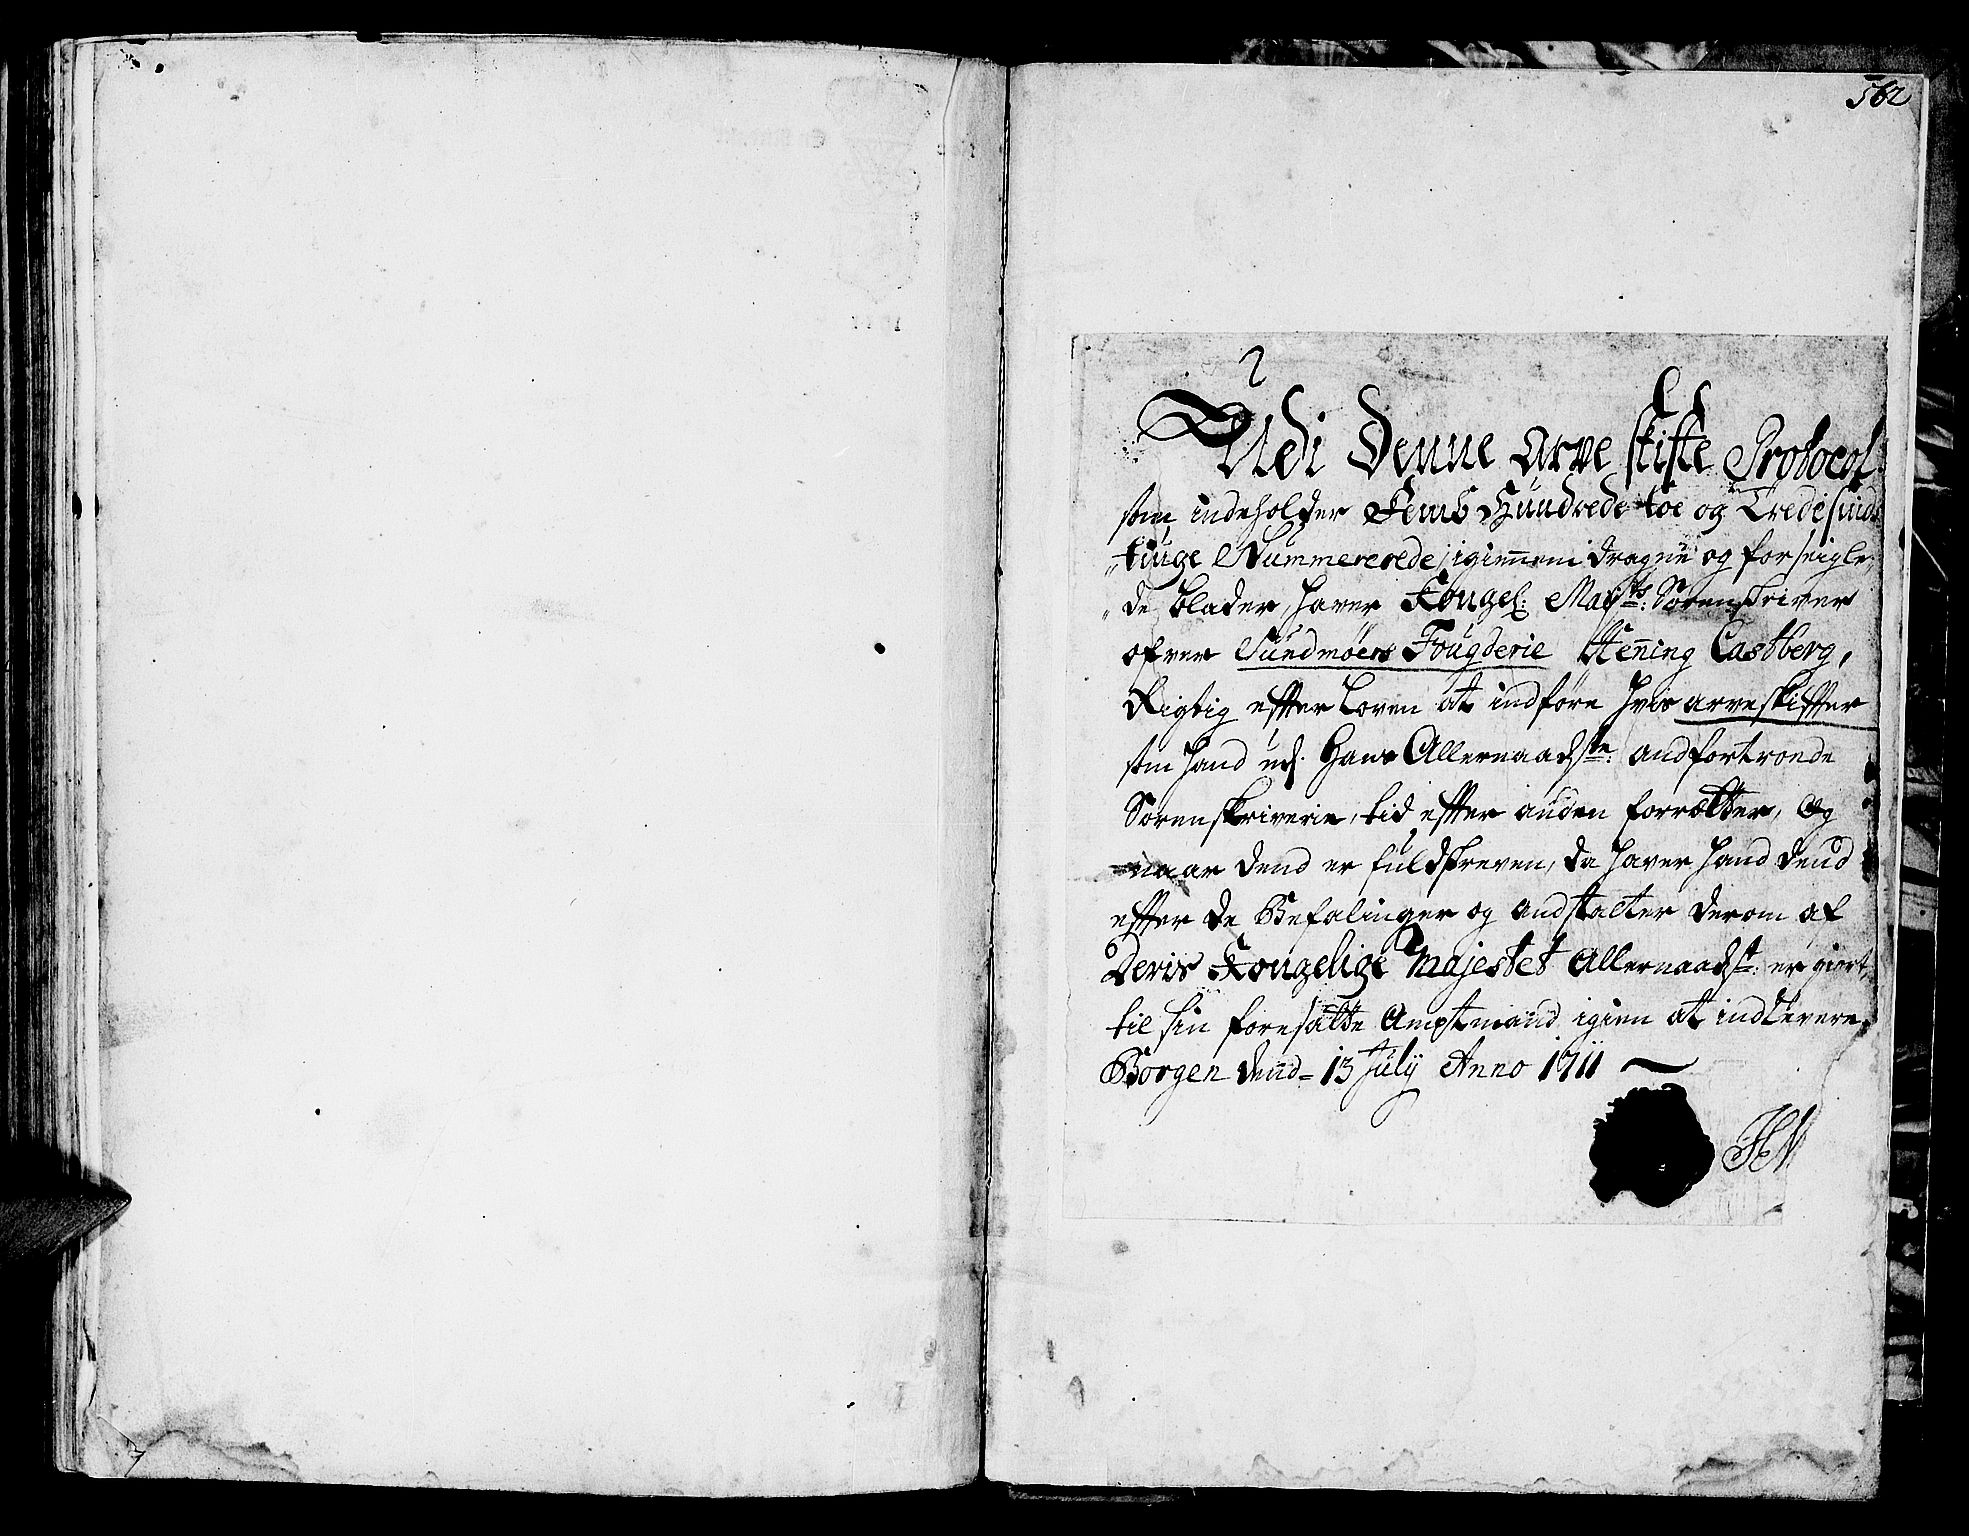 562
Udi Denne Arve skifte Protocol
som indeholder Femb Hundrede toe og Tredesinds
tiuge Nummererede, igiennem dragne og forseigle
de blader, hafver Kongel: Mayts: Sorenskriver
ofver Sundmøers Fougderie Hening Castberg,
Rigtig effter Loven at indføre hvis arveskiffter
som hand ud. Hans Allernaadste: andfortroede
Sorenskriverie, tid effter anden forrætter, Og
naar dend er fuldskreven, da hafver hand dend
effter de Befalinger og andstalter derom af
Deris Kongelige Majestet Allernaadst: er giort,
til sin foresatte Amptmand igien at indlevere,
Borgen dend 13 July Anno 1711